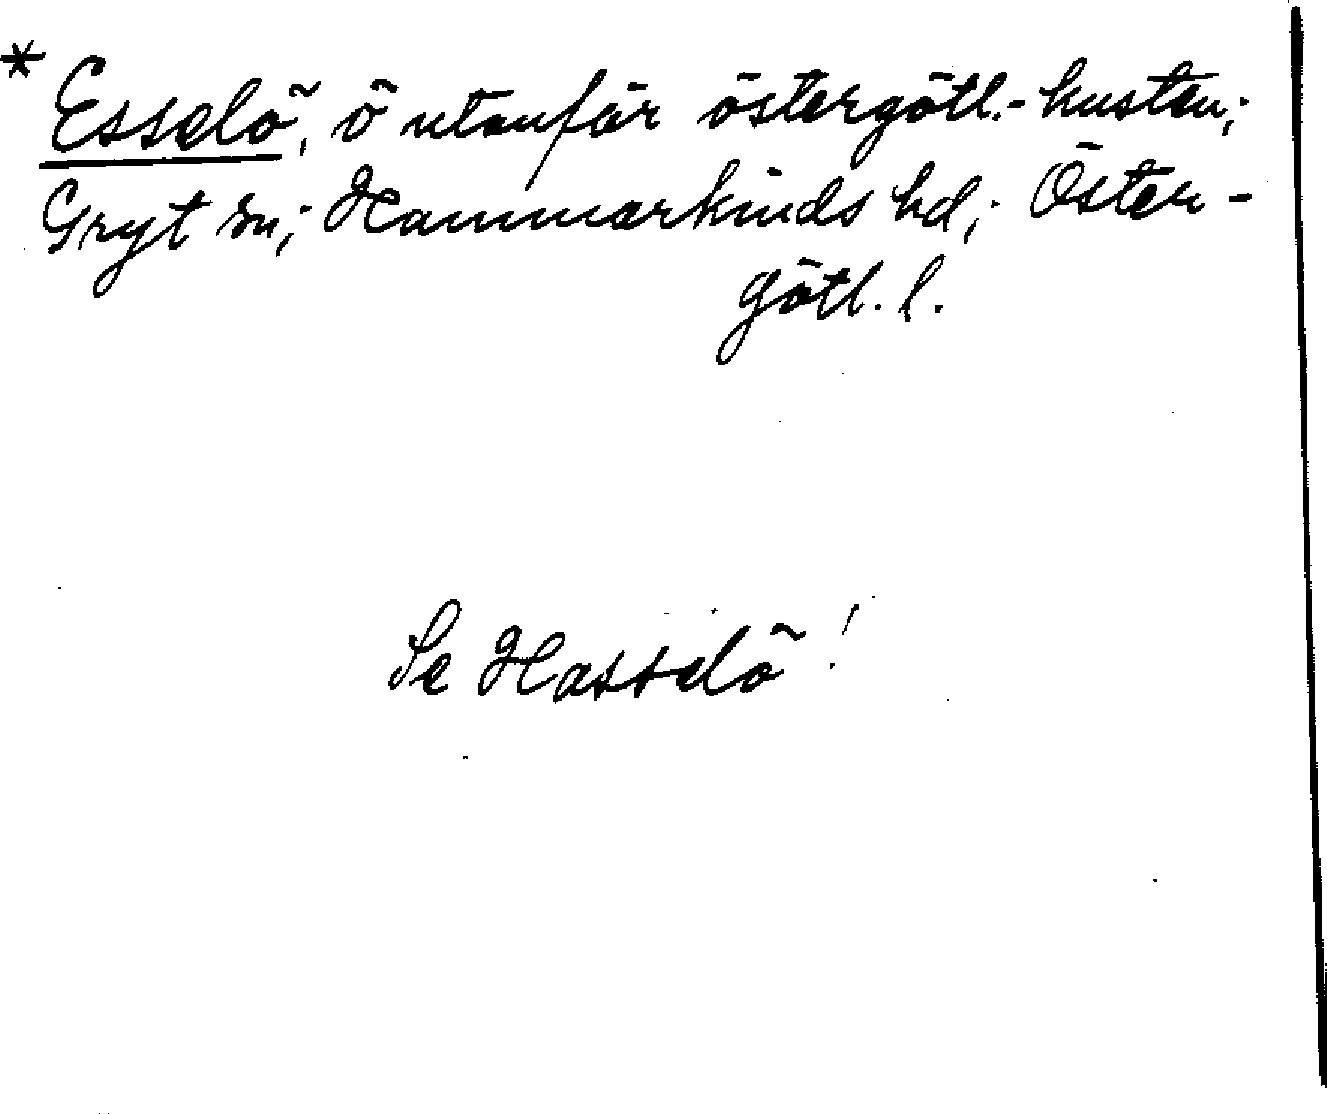 * Esselö, ö utanför östergötl.-kusten;
Gryt sn; Hammarkinds hd; Öster-
götl. l.
Se Hasselö!